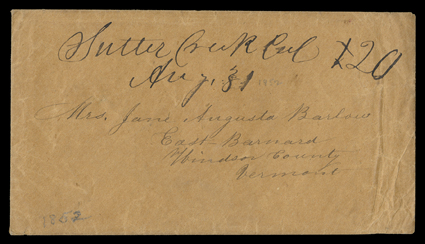 Sutter Creek Cal X20
Aug. 31
Mrs. Jane Augusta Barlow
East-Barnard
Windsor County
Vermont
1862